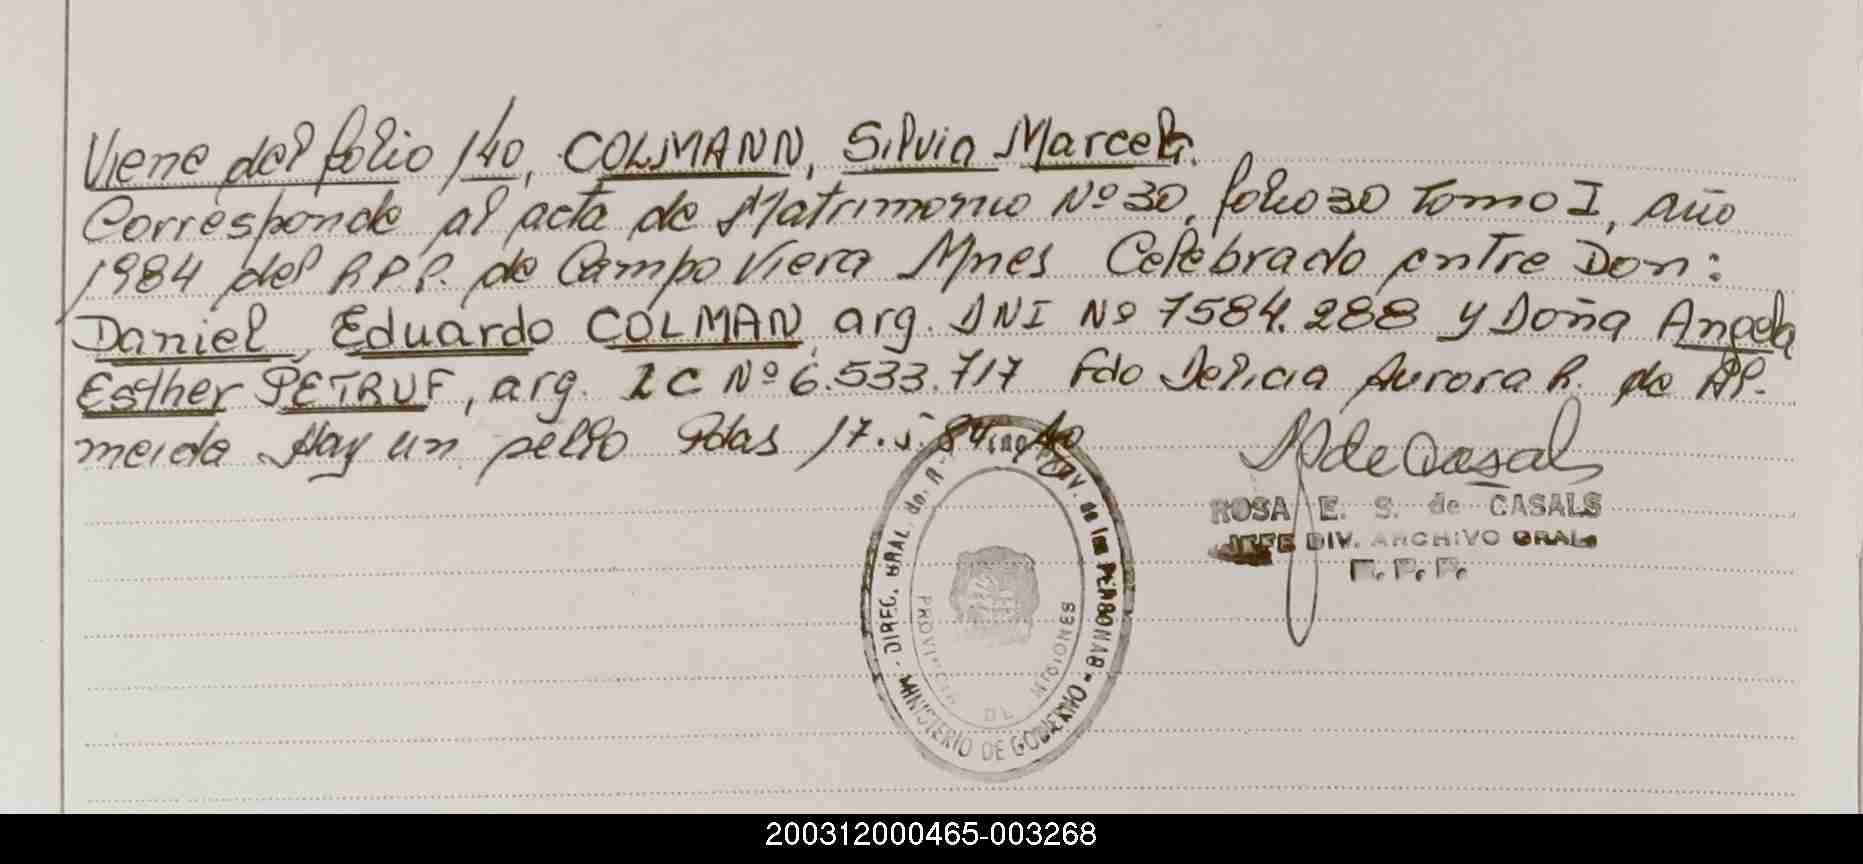 Viene del folio 140, COLMANN, Silvia Marcela.
Corresponde al acta de Matrimonio Nº 30, folio 30 Tomo I, año
1984 del R.P.P. de Campo Viera Mnes Celebrado entre Don:
Daniel, Eduardo COLMAN, arg. DNI Nº 7584.288 y Doña Angela
Esther PETRUF, arg. LC Nº 6.533.717 Fdo Delicia Aurora R. de Al-
meida Hay un sello Pdas 17.
R de Casals
ROSA E. S. de CASALS
JEFE DIV. ARCHIVO GRAL.
R. P. P.
DIREC. GRAL. de las PERSONAS
MINISTERIO DE GOBIERNO
PROVINCIA DE MISIONES
200312000465-003268